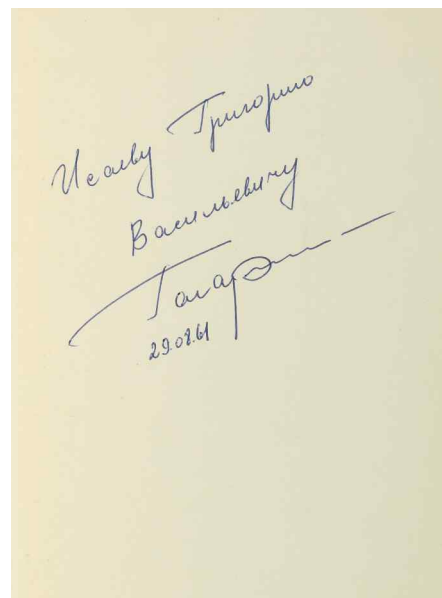 Исаеву Григорию
Васильевичу
Гагарин
29.08.61